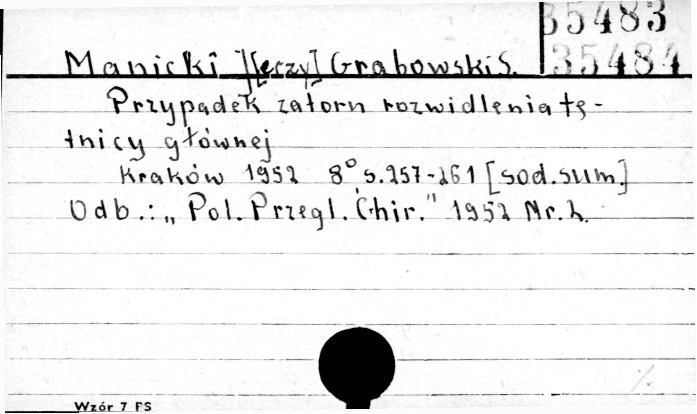 35483
35484
Manicki J[erzy] Grabowski S.
Przypadek zatoru rozwidlenia tę-
tnicy głównej
Kraków 1952 8° s. 257-261 [sod. sum.]
Odb.: „Pol. Przegl. Chir." 1952 Nr. 2.
Wzór 7 FS